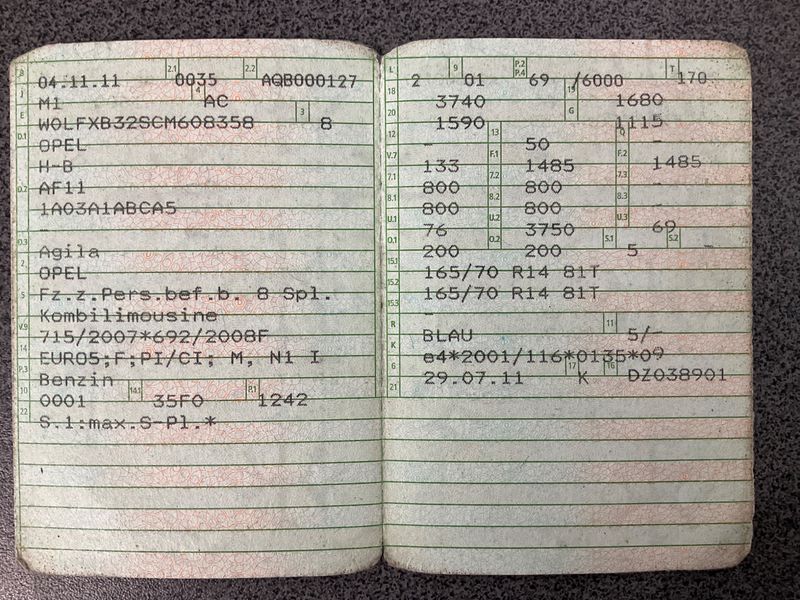 B 04.11.11 2.1 0035 2.2 AQB000127
J M1 4 AC
E W0LFXB32SCM608358 3 8
D.1 OPEL
H-B
D.2 AF11
1A03A1ABCA5
-
D.3 Agila
2 OPEL
5 Fz.z.Pers.bef.b. 8 Spl.
Kombilimousine
V.9 715/2007*692/2008F
14 EURO5;F;PI/CI; M, N1 I
P.3 Benzin
10 0001 14.1 35F0 P.1 1242
22 S.1:max.S-Pl.*
L 2 9 01 P.2 P.4 69 /6000 T 170
18 3740 19 1680
20 1590 G 1115
12 - 13 50 Q -
V.7 133 F.1 1485 F.2 1485
7.1 800 7.2 800 7.3 -
8.1 800 8.2 800 8.3 -
U.1 76 U.2 3750 U.3 69
O.1 200 O.2 200 S.1 5 S.2 -
15.1 165/70 R14 81T
15.2 165/70 R14 81T
15.3 -
R BLAU 11 5/-
K e4*2001/116*0135*09
6 29.07.11 17 K 16 DZ038901
21